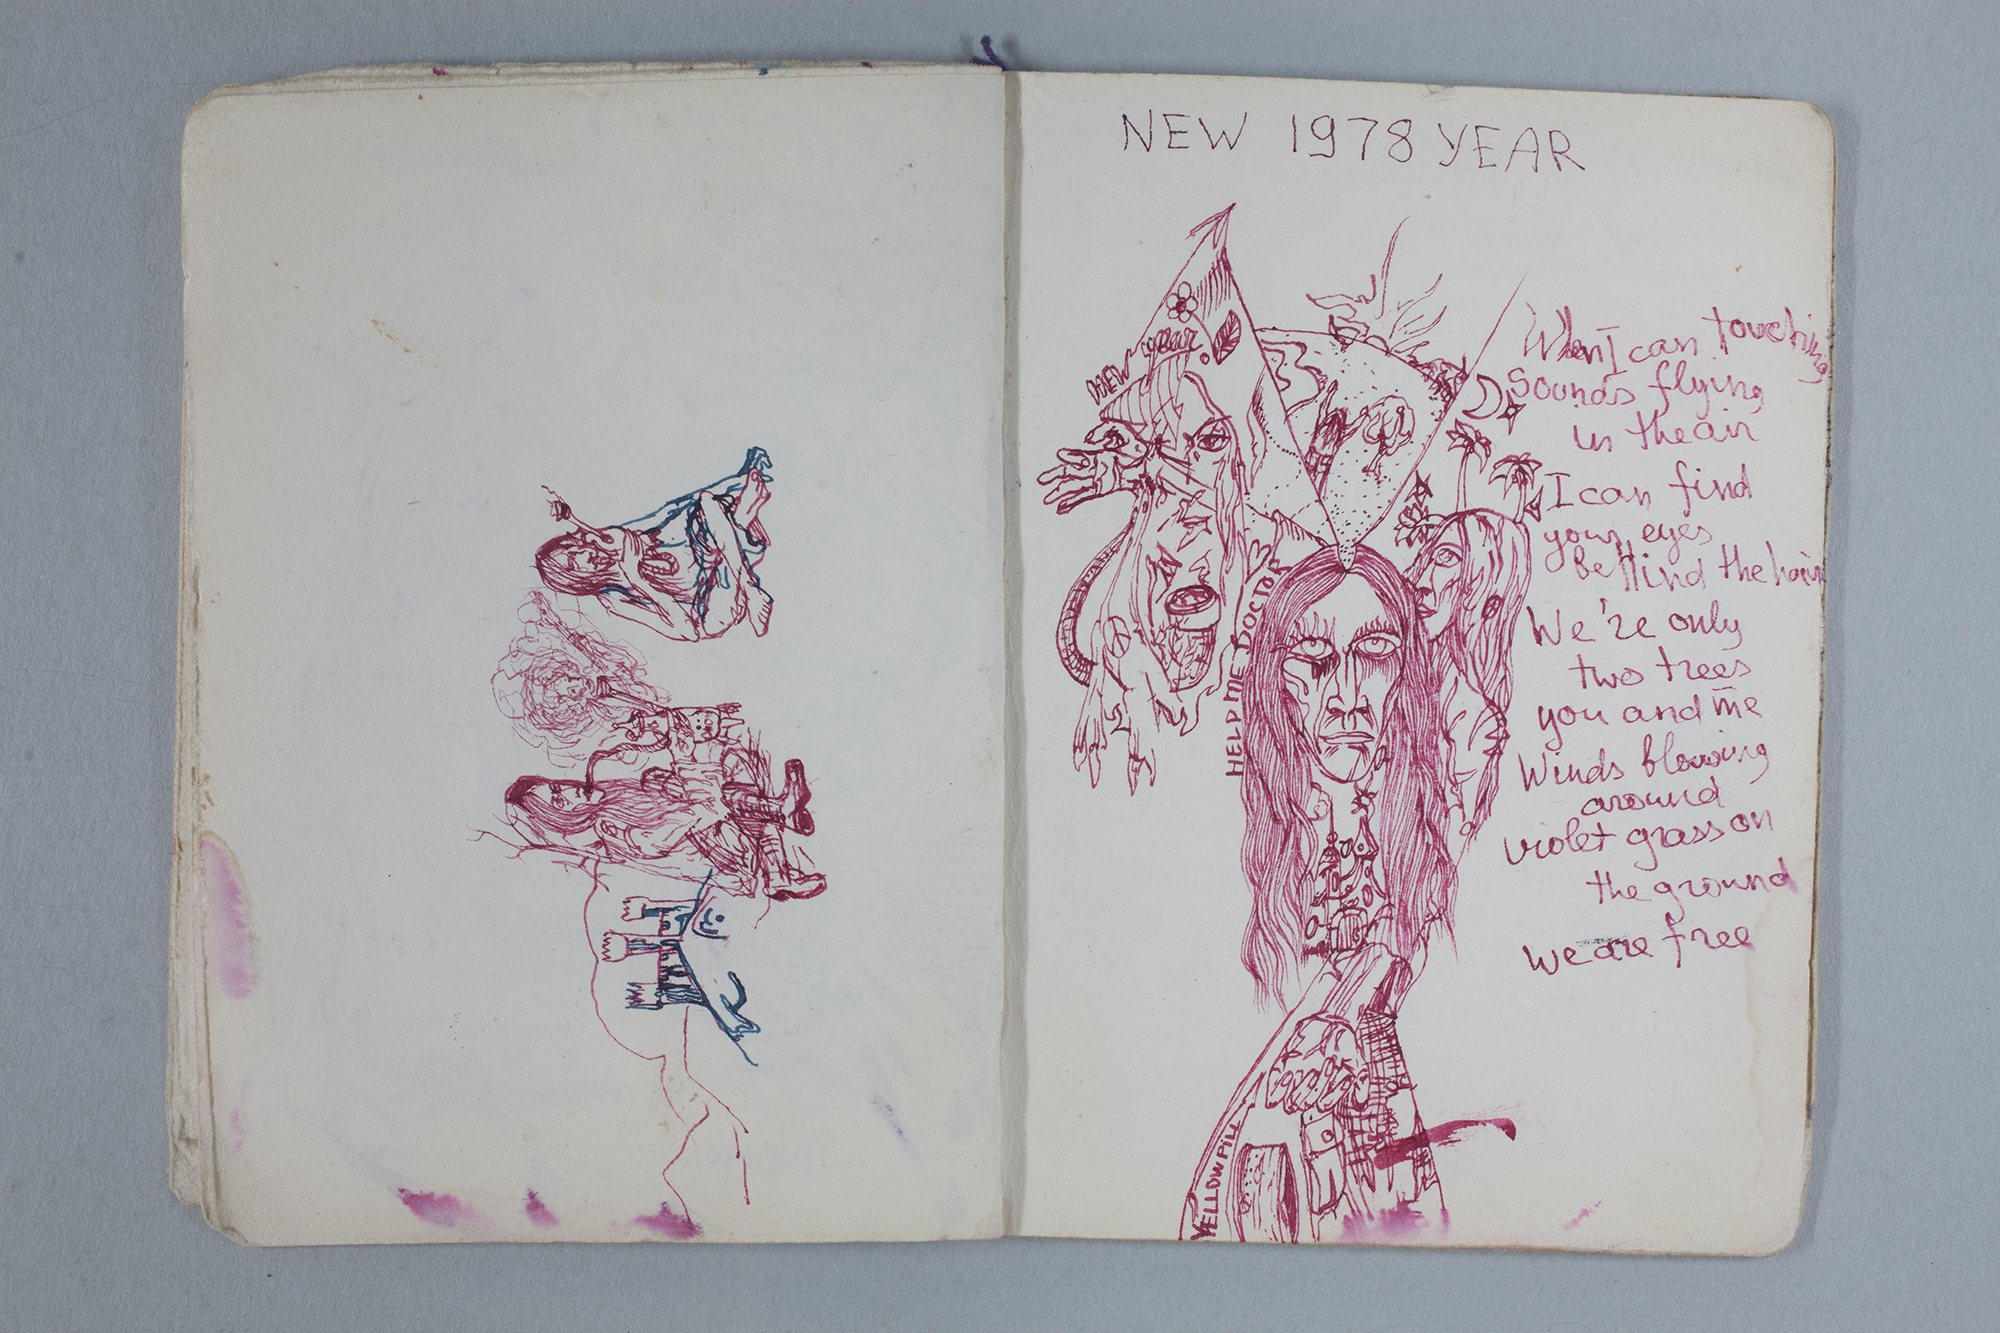 NEW 1978 YEAR
NEW year
HELP ME DOCTOR
When I can touching
Sounds flying
in the air
I can find
your eyes
behind the hair
We're only
two trees
you and me
Winds blowing
around
violet grass on
the ground
we are free
YELLOW PILL